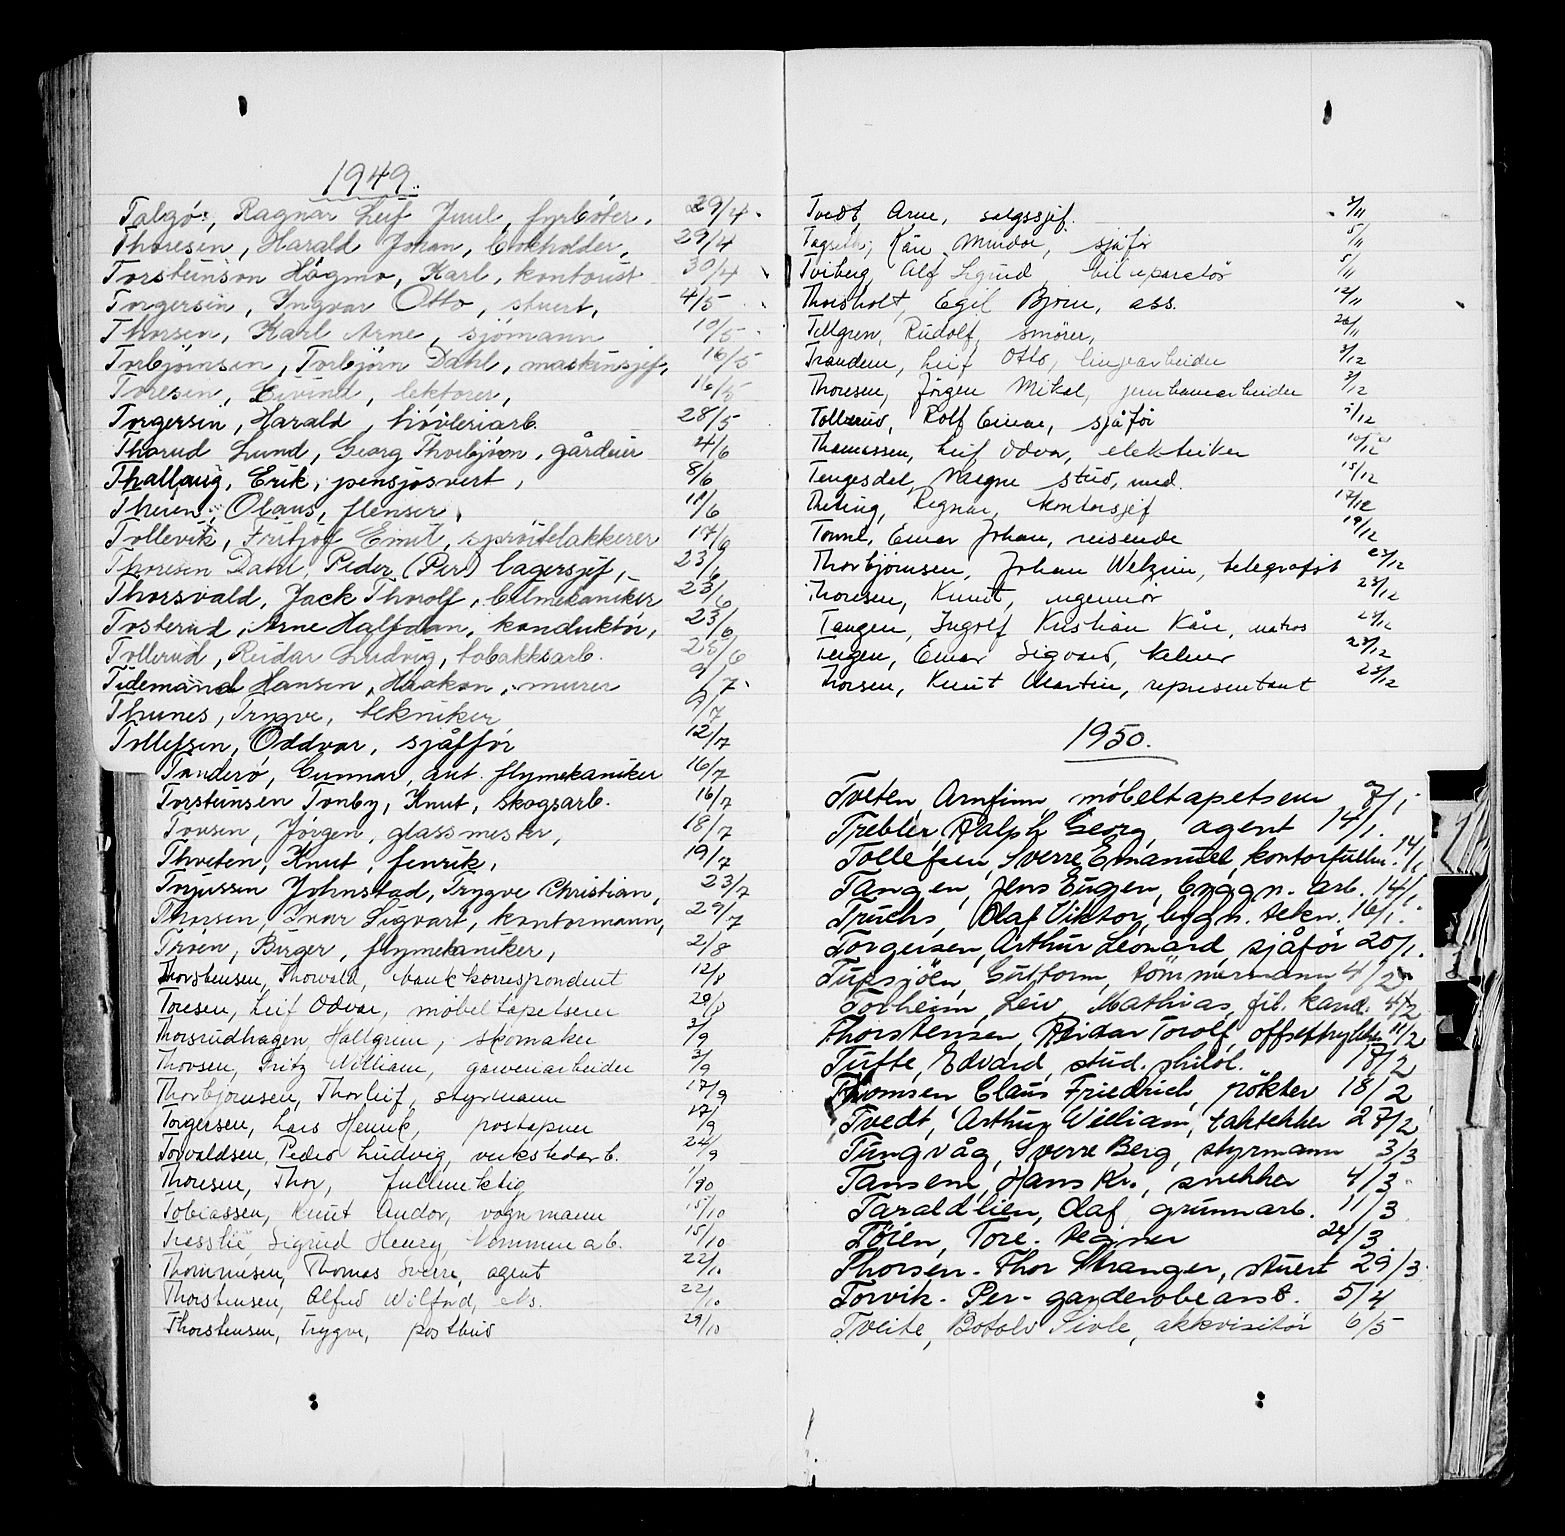 1949.
Talgö, Ragnar Leif Juul, fyrböter. 29/4
Thoresen, Harald Johan, bokholder, 29/4
Torsteinson Högmo, Karl, kontorist 30/4
Torgersen, Ingvar Otto, stuert, 4/5
Thorsen, Karl Arne, sjömann 10/5
Torbjörnsen, Torbjörn Dahl, maskinsjef, 16/5
Toresen, Eivind, lektorer, 16/5
Torgersen, Harald, høvleriarb. 28/5
Thorud Lund, Georg Thorbjörn, gårdeier 4/6
Thallaug, Erik, pensjosvert, 8/6
Thuen, Olaus, flenser, 11/6
Tollevik, Fritjof Emil, sprøitelakkerer 17/6
Thoresen Dahl, Peder (Per) lagersjef, 23/6
Thorsvald, Jack Thorolf, bilmekaniker 23/6
Tosterud, Arne Halfdan, konduktör, 23/6
Tollerud, Reidar Ludvig, tobakksarb. 25/6
Tidemand Hansen, Haakon, murer 9/7
Thunes, Trygve, tekniker 9/7
Tollefsen, Oddvar, sjåffør 12/7
Tanderö, Gunnar, aut. flymekaniker 16/7
Torsteinsen Tonby, Knut, skogsarb. 16/7
Tovsen, Jörgen, glassmester, 18/7
Thveten, Knut, fenrik, 19/7
Torjussen Johnstad, Trygve Christian, 23/7
Thorsen, Einar Sigvart, kontormann, 29/7
Troen, Birger, flymekaniker, 2/8
Thorstensen, Thorvald, bankkorrespondent 12/8
Toresen, Leif Odvar, möbeltapetserer 20/8
Thorsrudhagen, Hallgrim, skomaker 3/9
Thovsen, Fritz William, garveriarbeider 3/9
Thorbjörnsen, Thorleif, styrmann 17/9
Torgersen, Lars Henrik, postapner 17/9
Torvaldsen, Peder Ludvig, verkstedarb. 24/9
Thoresen, Thor, fullmektig 1/10
Tobiassen, Knut Andor, vognmann 15/10
Tresslie, Sigurd Henry 15/10
Thommesen, Thomas Sverre, agent 22/10
Thorstensen, Alfred Wilford, 22/10
Thorstensen, Trygve, postbud 29/10
Tvedt, Arne, salgssjef. 3/11
Kåre sjåför 5/11
Tviberg, Alf Sigurd, bilreparatör 5/11
Thorsholt, Egil Björn, ass. 12/11
Tillgren, Rudolf, smörer, 26/11
Trandem, Leif Otto, linjearbeider 3/12
Thoresen, Jörgen Mikal, jernbanearbeider 3/12
Tollerud, Rolf Einar, sjåför 5/12
Thomassen, Leif Odvar, elektriker 10/12
Tengesdal, Magne stud. med. 15/12
Ragnar, kontorsjef 17/12
Tonne, Einar Johan, reisende 19/12
Thorbjörnsen, Johan Welzien, telegrafist 23/12
Thoresen, Knut, ingeniör 23/12
Tangen, Ingolf Kristian Kåre, matros 23/12
Teigen, Einar Sigvard, kelner 23/12
Thorsen, Knut Martin, representant 23/12
1950.
Tveten Arnfinn, möbeltapetserer 7/1
Trebler, Ralph Georg, agent 14/1.
Tollefsen, Sverre Emanuel, kontorfullm. 14/1
Tangen, Jens Eugen, byggn. arb. 14/1
Truchs, Olaf Viktor, byggn. tekn. 16/1.
Torgersen, Arthur Leonard, sjåför 20/1.
Tufsjöen, Guttorm, tömmermann 4/2
Torheim, Leiv Mathias, fil. kand. 4/2
Thorstensen, Reidar Torolf, offsettrykker 11/2
Tufte, Edvard, stud. philol. 17/2
Thomsen, Claus Friedrich, røkter 18/2
Tvedt, Arthur William, taktekker 27/2
Tungvåg, Sverre Berg, styrmann 3/3
Tansem, Hans Kr., snekker 4/3
Taraldlien, Olaf, grunnarb. 11/3
Töien, Tore. tegner 24/3
Thorsen. Thor Stranger, stuert 29/3
Torvik. Per. garderobeanst. 5/4
Tveite, Botolv Sivle, akkvisitör 6/5